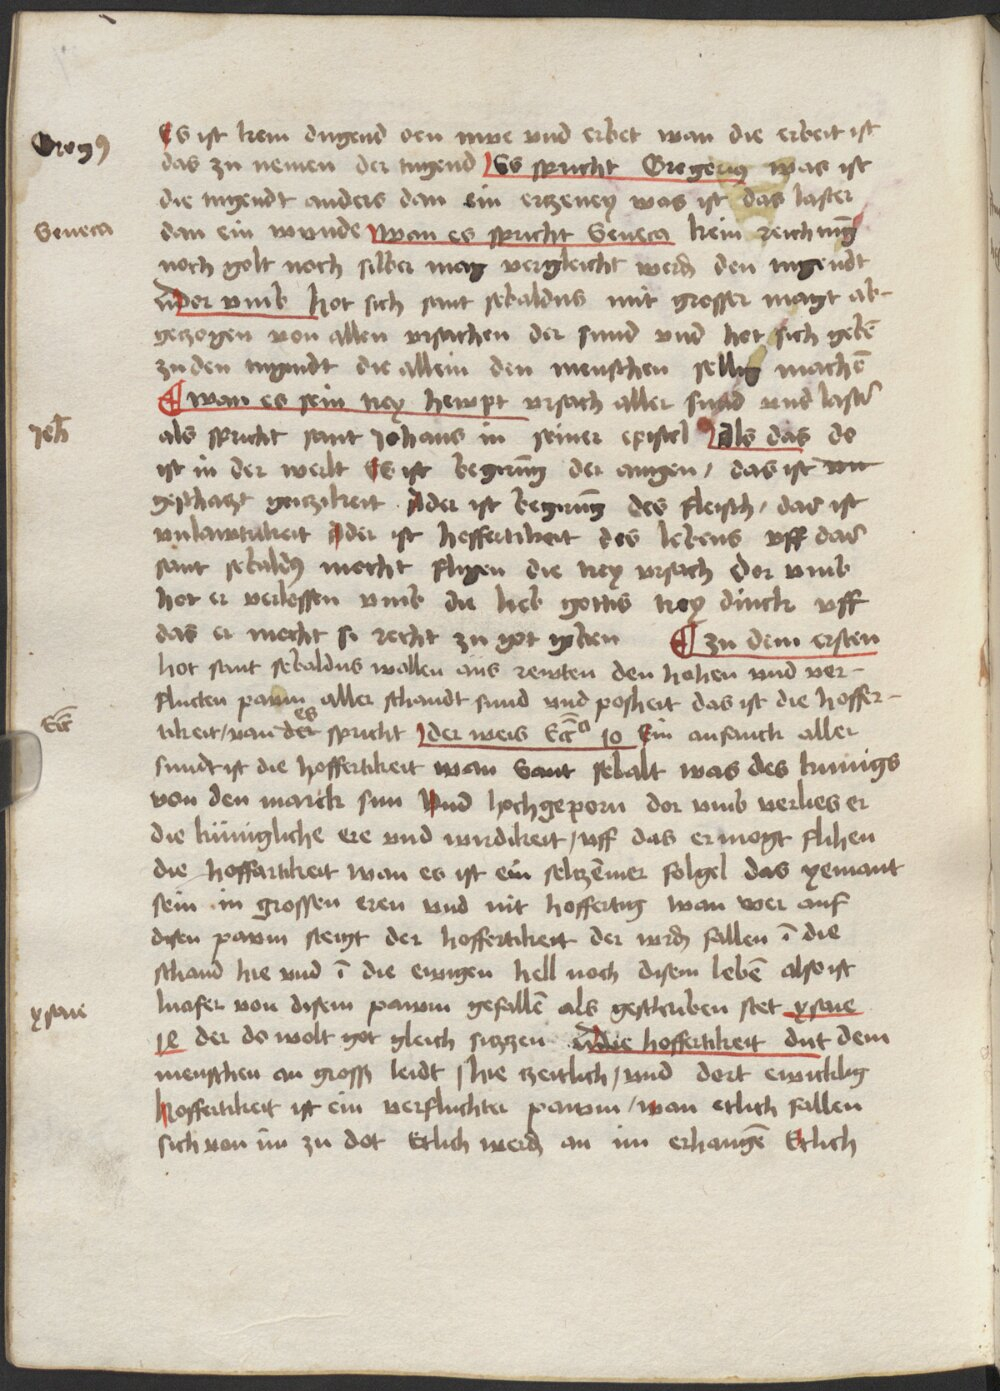 Gregꝰ
Es ist kein dugend den mve vnd erbet wan die erbeit ist
das zu nemen der tugend Es spricht Gregeriꝰ was ist
die tugendt anders dan ein erczeney was ist das laster
Seneca
dan ein wunde wan es spricht Seneca kein reichtu̅g
noch golt noch silber mag vergleicht werdn̄ den tugendt
dor vmb hot sich sant sebaldus mit grosser magt ab-
geczogen von allen vrsachen der sund vnd hot sich gebē
zu den tugendt die allein den menschen sellig machē
wan es sein trey hewpt vrsach aller sund vnd laster
Joh̄
als spricht sant Johans in seiner epistel als das do
ist in der werlt Es ist begiru̅g der augen / das ist
geczikeit Ader ist begiru̅g des fleisch / das ist
vnlawtrikeit Ader ist hoffertikeit des lebens vff das
sant sebaldꝰ mocht flihen die trey vrsach Dor vmb
hot er verlossen vmb die lieb gottis trey dinck vff
das er mocht so recht zu got geben zu dem ersten
hot sant sebaldus wallen aus rewten den hohen vnd ver-
fluchten pawm aller schandt sund vnd posheit das ist die hoffer-
Ecc̄
tikeit / van der es spricht der weis Ecc̄ᵒ 10 Ein anfanck aller
sundt ist die hoffertikeit wan Sant sebalt was des kunigs
von den marck sun Vnd hochgeporn dor vmb verlies er
die kunigliche ere vnd wirdikeit / vff das er mogt flihen
die hoffartikeit wan es ist ein selczēmer folgel das yemant
sein in grossen eren vnd nit hoffertig wan wer auf
disen pawm steigt der hoffertikeit der wirdt fallen ī die
schand hie vnd ī die ewigen hell noch disem lebē also ist
ysaie
lucifer von disem pawm gefallē als geschriben stet ysaie
der do wolt got gleich siczzen die hoffertikeit dut dem
menschen an gross leidt / hie zeitlich / vnd dort ewicklig
Hoffertikeit ist ein verfluchter pawm / wan etlich fallen
sich von im zu dot Etlich werdn̄ an im erhangē Etlich